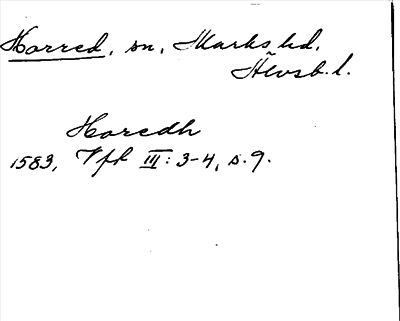 Horred, sn, Marks hd,
Älvsb. l.
Horedh
1583, Vfh III: 3-4, s. 9.